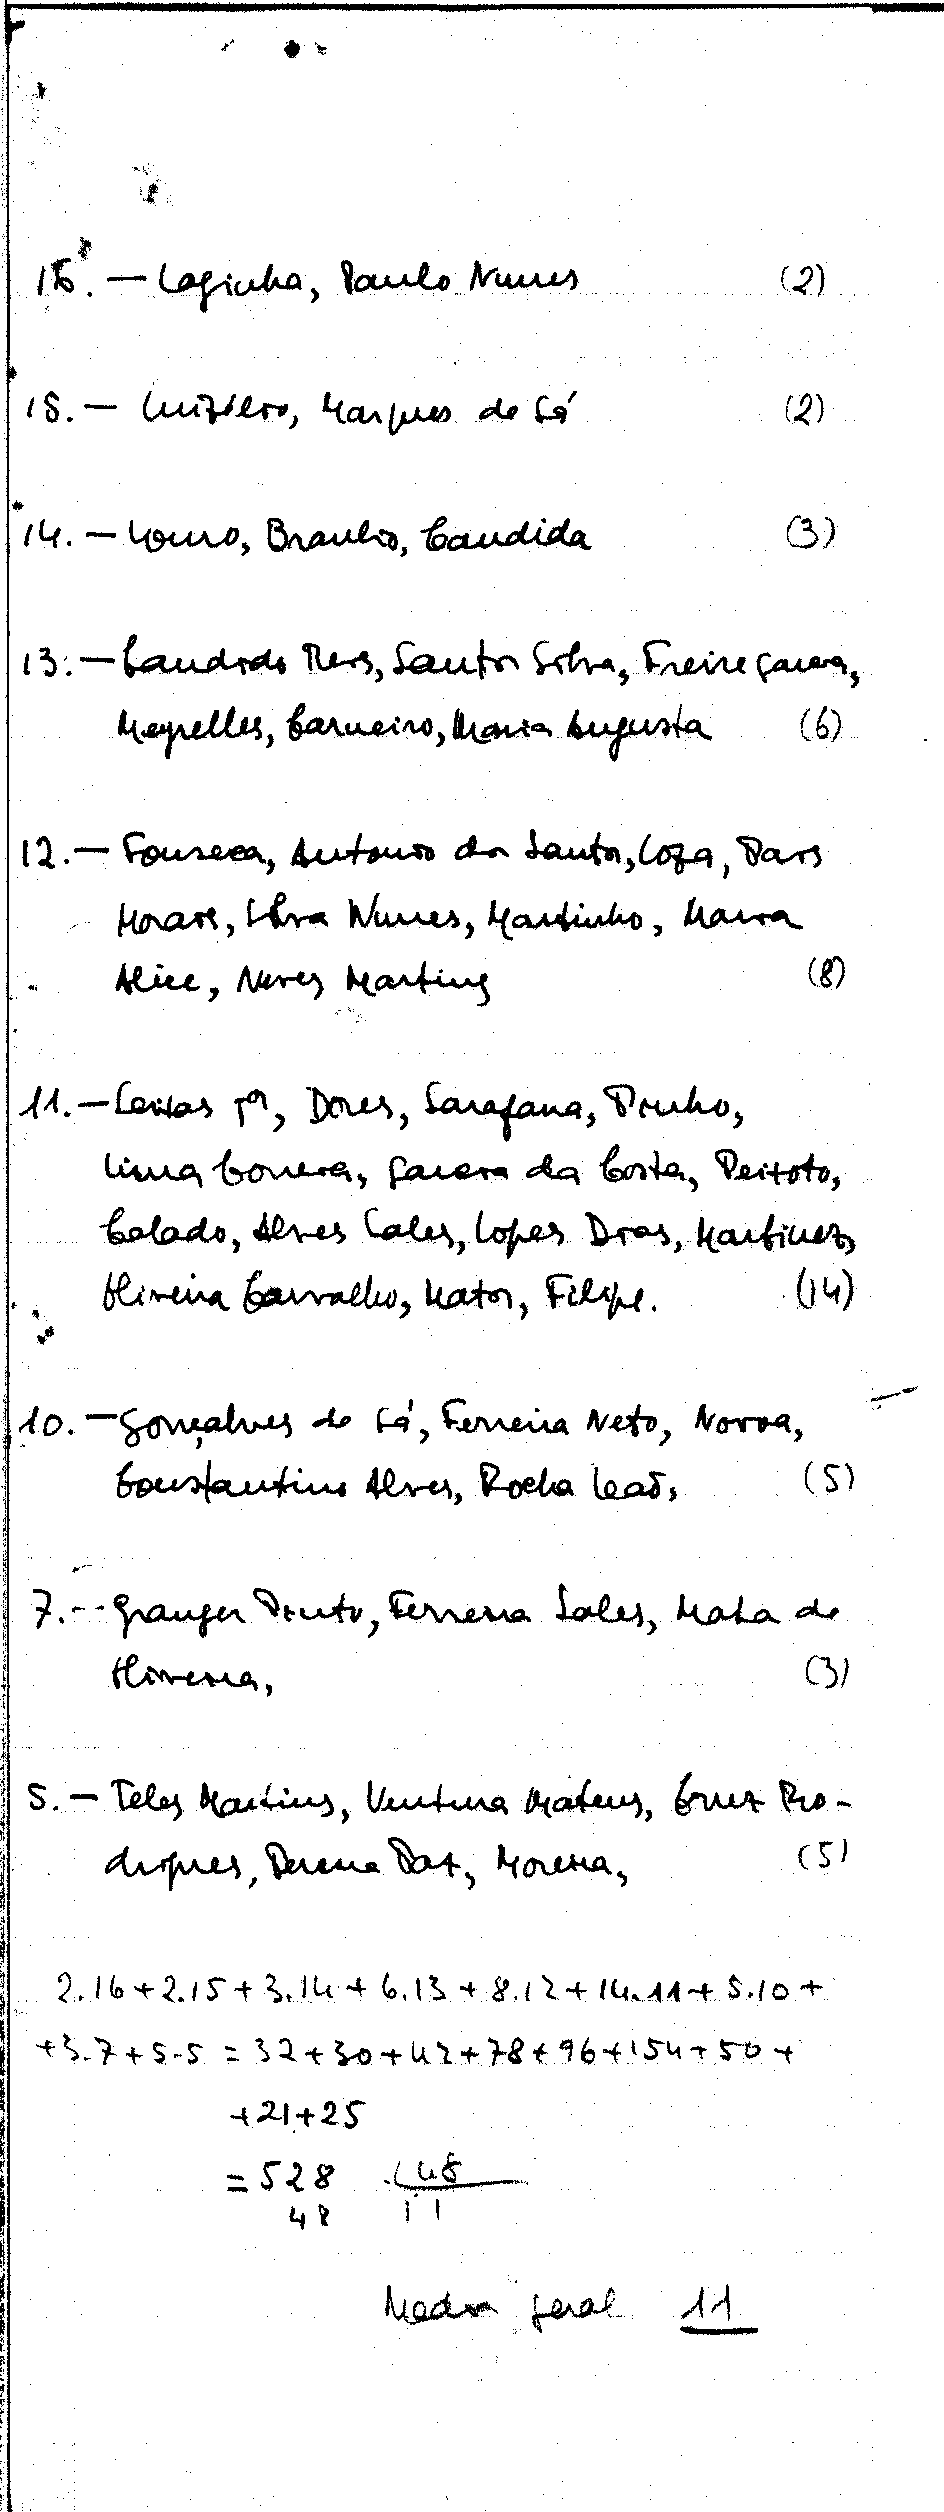 16. — Laginha, Paulo Nunes (2)
15. — Luizélio, Marques de Sá (2)
14. — Louro, Braulio, Candida (3)
13. — Candido Reis, Santos Silva, Freire Garcia,
Meyrelles, Carneiro, Maria Augusta (6)
12. — Fonseca, Antonio dos Santos, Coza, Pais
Morais, Silva Nunes, Martinho, Maria
Alice, Neves Martins (8)
11. — Seixas Tª, Dores, Sarafana, Pinho,
Lima Correia, Garcia da Costa, Peixoto,
Calado, Alves Sales, Lopes Dias, Martinez,
Oliveira Carvalho, Matos, Filipe. (14)
10. — Gonçalves de Sá, Ferreira Neto, Novoa,
Constantino Alves, Rocha Leaõ, (5)
7. -- Granger Pinto, Ferreira Sales, Mata de
Oliveira, (3)
5. — Teles Martins, Ventura Mateus, Cruz Ro-
drigues, Pereira Paz, Moreira, (5)
2.16+2.15+3.14+6.13+8.12+14.11+5.10+
+3.7+5.5 = 32+30+42+78+96+154+50+
+21+25
= 528 48
48 11
Media geral 11